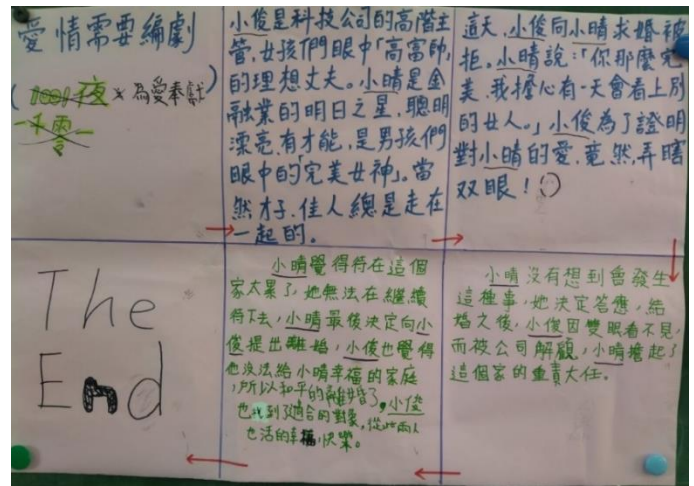 愛情需要編劇
(1001夜 x 為愛奉獻)
一千零一
小俊是科技公司的高階主
管,女孩們眼中「高富帥」
的理想丈夫。小晴是金
融業的明日之星,聰明
漂亮有才能,是男孩們
眼中的「完美女神」。當
然才子、佳人總是走在
一起的。
這天,小俊向小晴求婚被
拒。小晴說:「你那麼完
美,我擔心有一天會看上別
的女人。」小俊為了證明
對小晴的愛,竟然,弄瞎
双眼!
小晴沒有想到會發生
這種事,她決定答應,結
婚之後,小俊因雙眼看不見,
而被公司解顧,小晴擔起了
這個家的重責大任。
小晴覺得待在這個
家太累了,她無法在繼續
待下去,小晴最後決定向小
俊提出離婚,小俊也覺得
他沒法給小晴幸福的家庭
,所以和平的離婚了,小俊
也找到了適合的對象,從此兩人
也活的幸福,快樂。
The
End